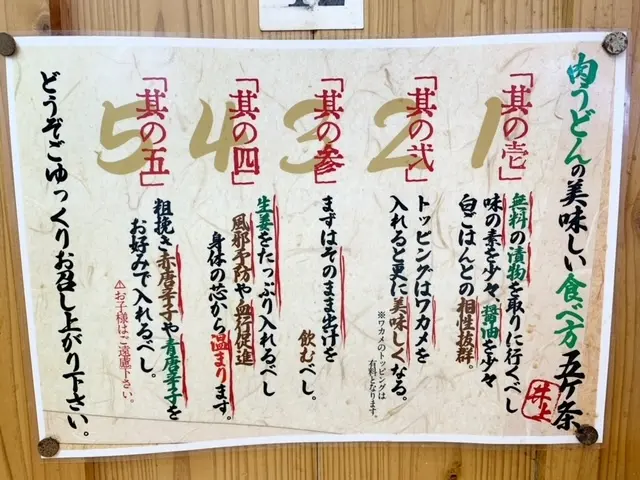 肉うどんの美味しい食べ方五ヶ条
井上
1
「其の壱」
無料の漬物を取りに行くべし
味の素を少々、醤油を少々
白ごはんとの相性抜群。
2
「其の弐」
トッピングはワカメを
入れると更に美味しくなる。
※ワカメのトッピングは
有料となります。
3
「其の参」
まずはそのまま出汁を
飲むべし。
4
「其の四」
生姜をたっぷり入れるべし
風邪予防や血行促進
身体の芯から温まります。
5
「其の五」
粗挽き赤唐辛子や青唐辛子を
お好みで入れるべし。
⚠お子様はご遠慮下さい。
どうぞごゆっくりお召し上がり下さい。